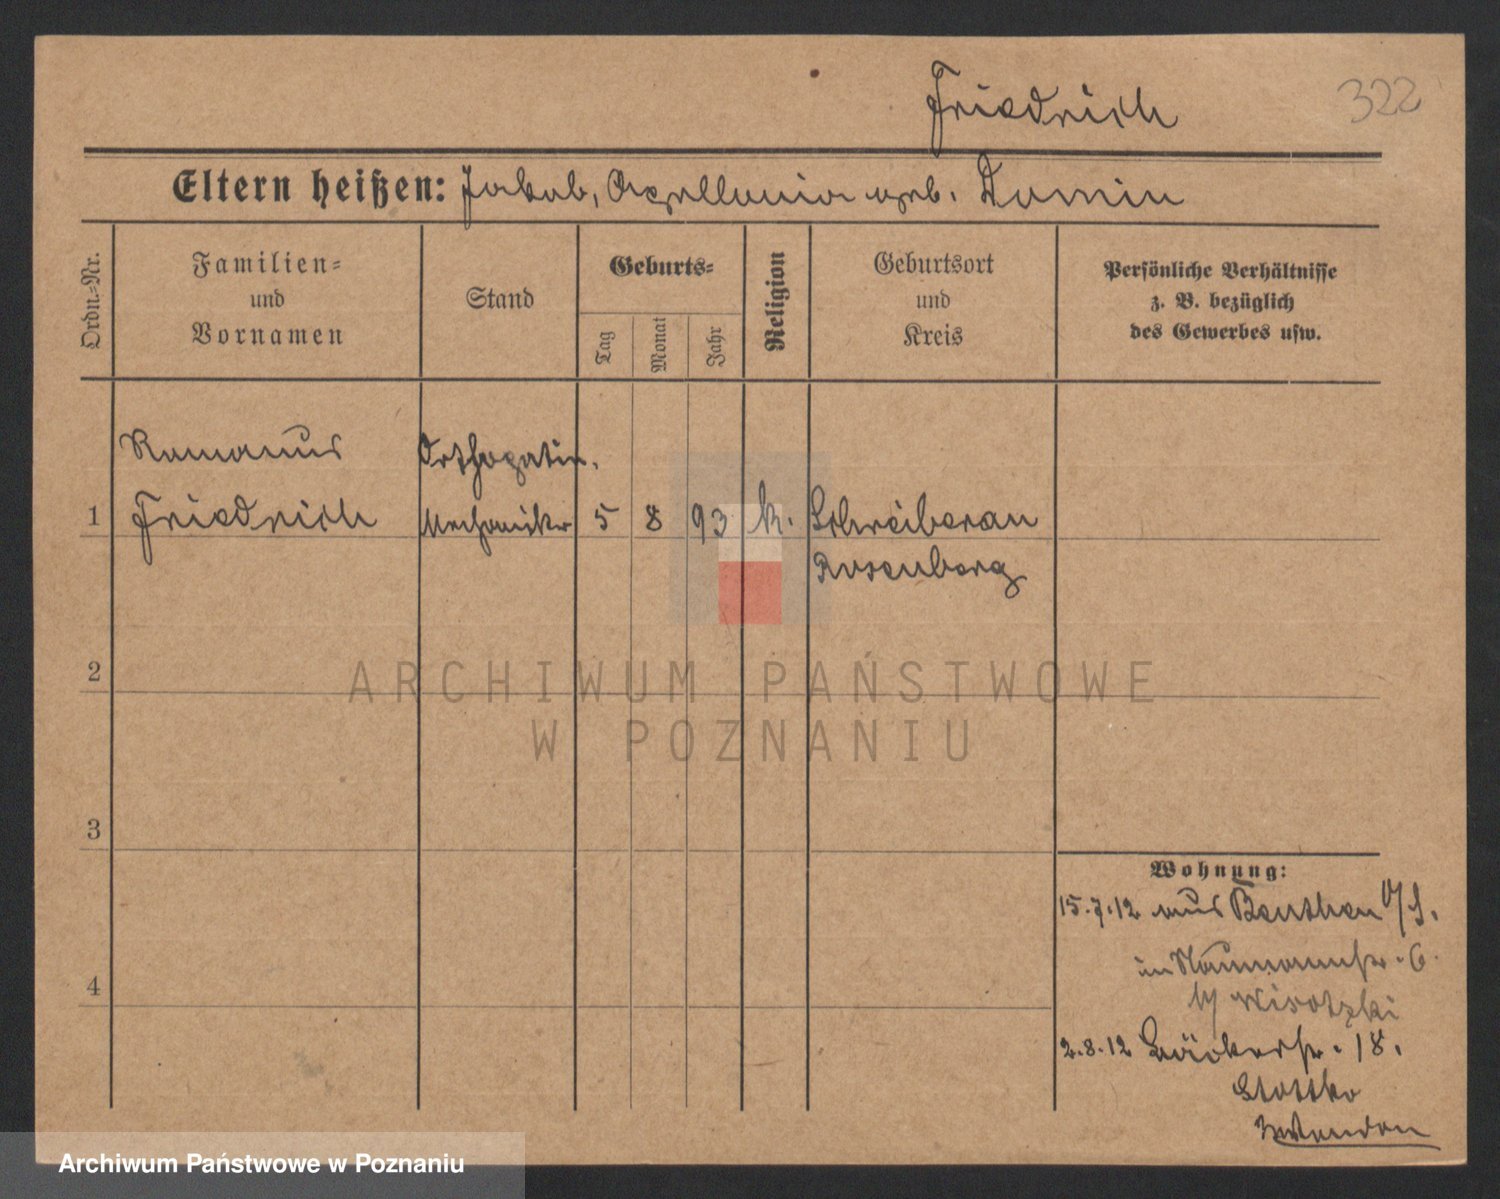 Friedrich 322
Eltern heißen: Jakob, Apollonia geb. Domin
Ordn.=Nr.
Familien=
und
Vornamen
Stand
Geburts=
Tag
Monat
Jahr
Religion
Geburtsort
und
Kreis
Persönliche Verhältnisse
z. B. bezüglich
des Gewerbes usw.
Romanus Orthopädie.
1 Friedrich Mechaniker 5 8 93 k. Schreibersau
Rosenberg
2
ARCHIWUM PAŃSTWOWE
W POZNANIU
3
4
Wohnung:
15.7.12 aus Beuthen O/S.
im Naumannstr. 6.
b/ Wisotzki
2.8.12 Bäckerstr. 18.
Archiwum Państwowe w Poznaniu